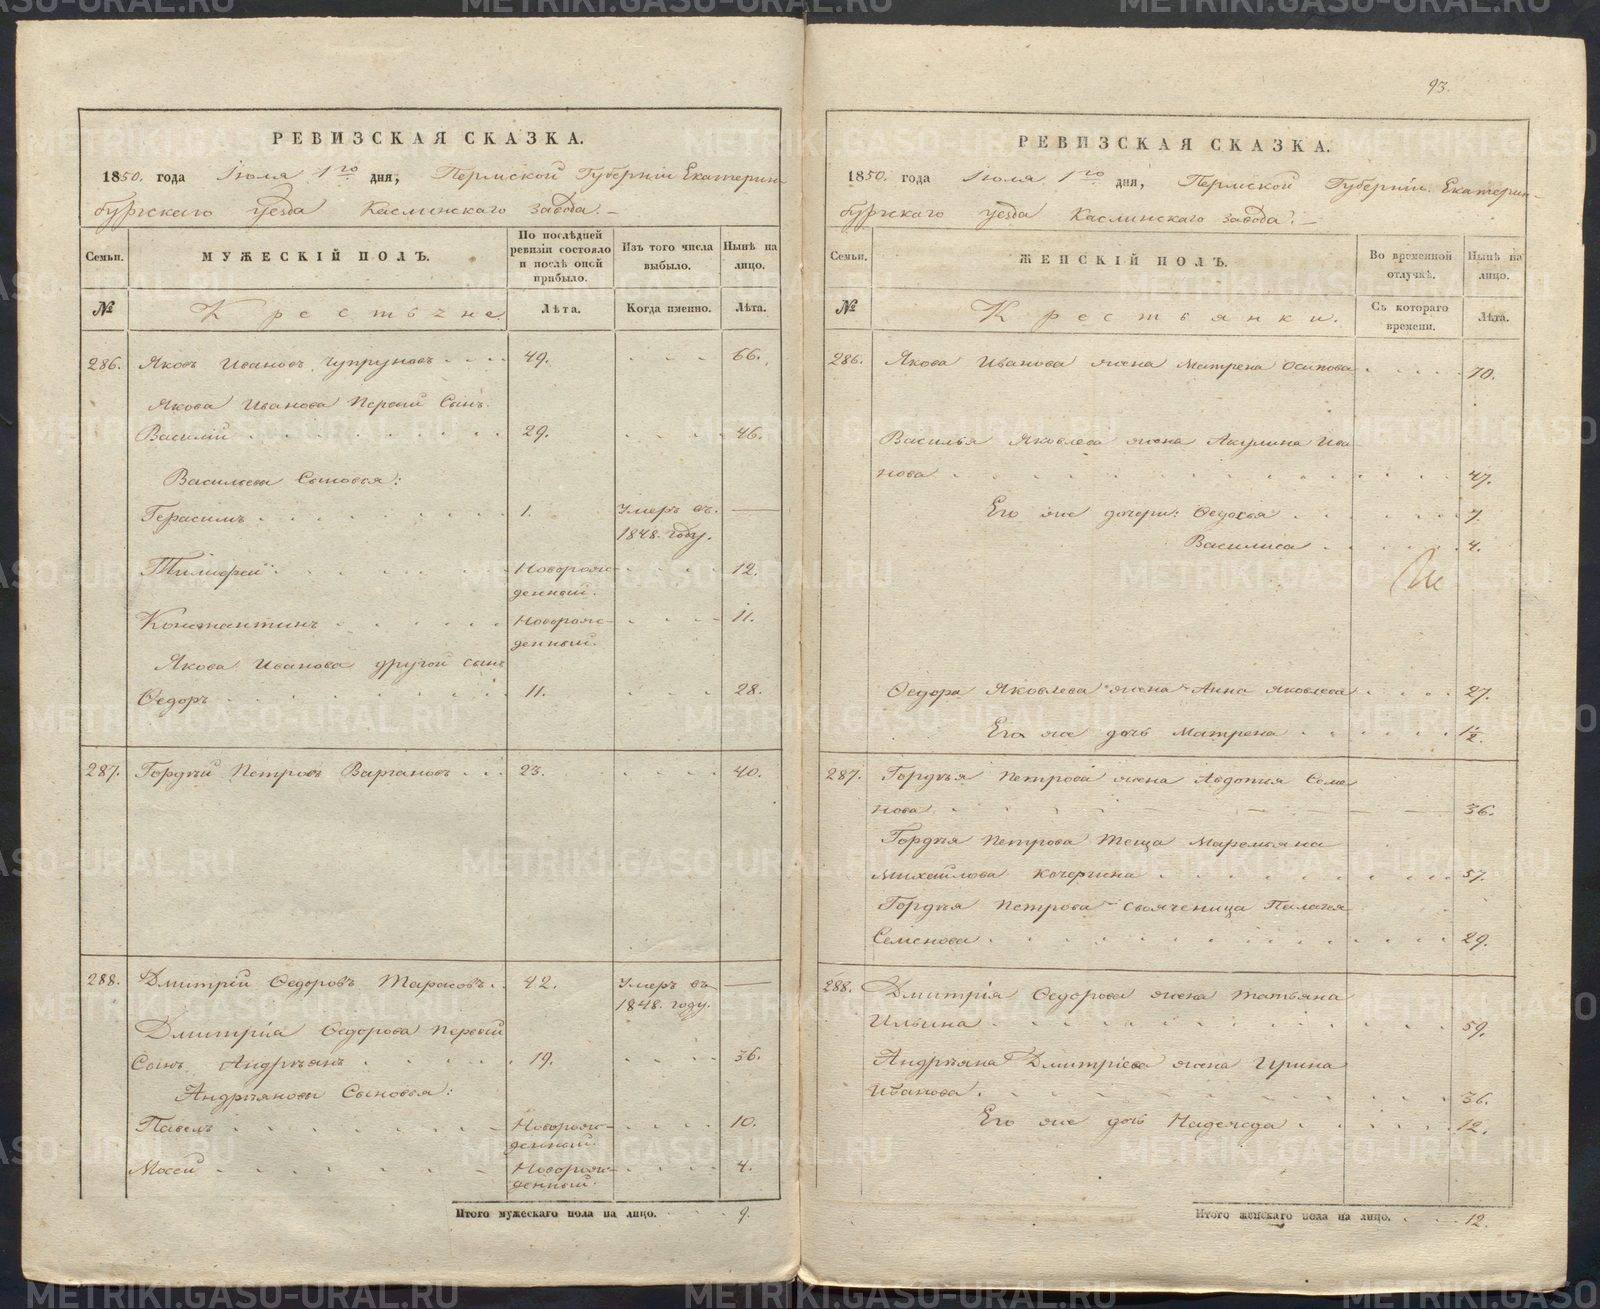 РЕВИЗСКАЯ СКАЗКА.
1850. года Іюля 1го дня, Пермской Губерніи Екатерин-
бургскаго уезда Каслинскаго завода. –
Семьи.
МУЖЕСКІЙ ПОЛЪ.
По послѣдней ревизіи состояло и послѣ оней прибыло.
Изъ того числа выбыло.
Нынѣ на лицо.
№
Крестьяне
Лѣта.
Когда именно.
Лѣта.
286. Яковъ Ивановъ Чупруновъ 49. 66.
Якова Иванова Первый Сынъ
Василій 29. 46.
Васильевы Сыновья:
Герасимъ 1. Умеръ въ 1848. году. —
Тимофей Новорож-
денный. 12.
Константинъ Новорож-
денный. 11.
Якова Иванова другой сынъ
Ѳедоръ 11. 28.
287. Гордѣй Петровъ Вагановъ 23. 40.
288. Дмитрій Ѳедоровъ Тарасовъ 42. Умеръ въ 1848. году. —
Дмитрія Ѳедорова первый
Сынъ Андреянъ 19. 36.
Андреяновы Сыновья:
Павелъ Новорож-
денный. 10.
Мосей Новорож-
денный. 4.
Итого мужескаго пола на лицо. 9.
93.
РЕВИЗСКАЯ СКАЗКА.
1850. года Іюля 1го дня, Пермской Губерніи Екатерин-
бургскаго уезда Каслинскаго завода. –
Семьи.
ЖЕНСКІЙ ПОЛЪ.
Во временной отлучкѣ.
Нынѣ на лицо.
№
Крестьянки.
Съ котораго времени.
Лѣта.
286. Якова Иванова жена Матрена Осипова 70.
Василья Яковлева жена Акулина Ива-
нова 47.
Его же дочери: Ѳедосья 7.
Василиса 4.
Ѳедора Яковлева жена Анна Яковлева 27.
Его же дочь Матрена 1½.
287. Гордѣя Петрова жена Авдотья Семе
нова 36.
Гордѣя Петрова теща Маремьяна
Михайлова Кочергина 57.
Гордѣя Петрова свояченица Палагея
Семенова 29.
288. Дмитрія Ѳедорова жена Татьяна
Ильина 59.
Андреяна Дмитріева жена Ирина
Иванова 36.
Его же дочь Надежда 12.
Итого женскаго пола на лицо. 12.
METRIKI.GASO-URAL.RU